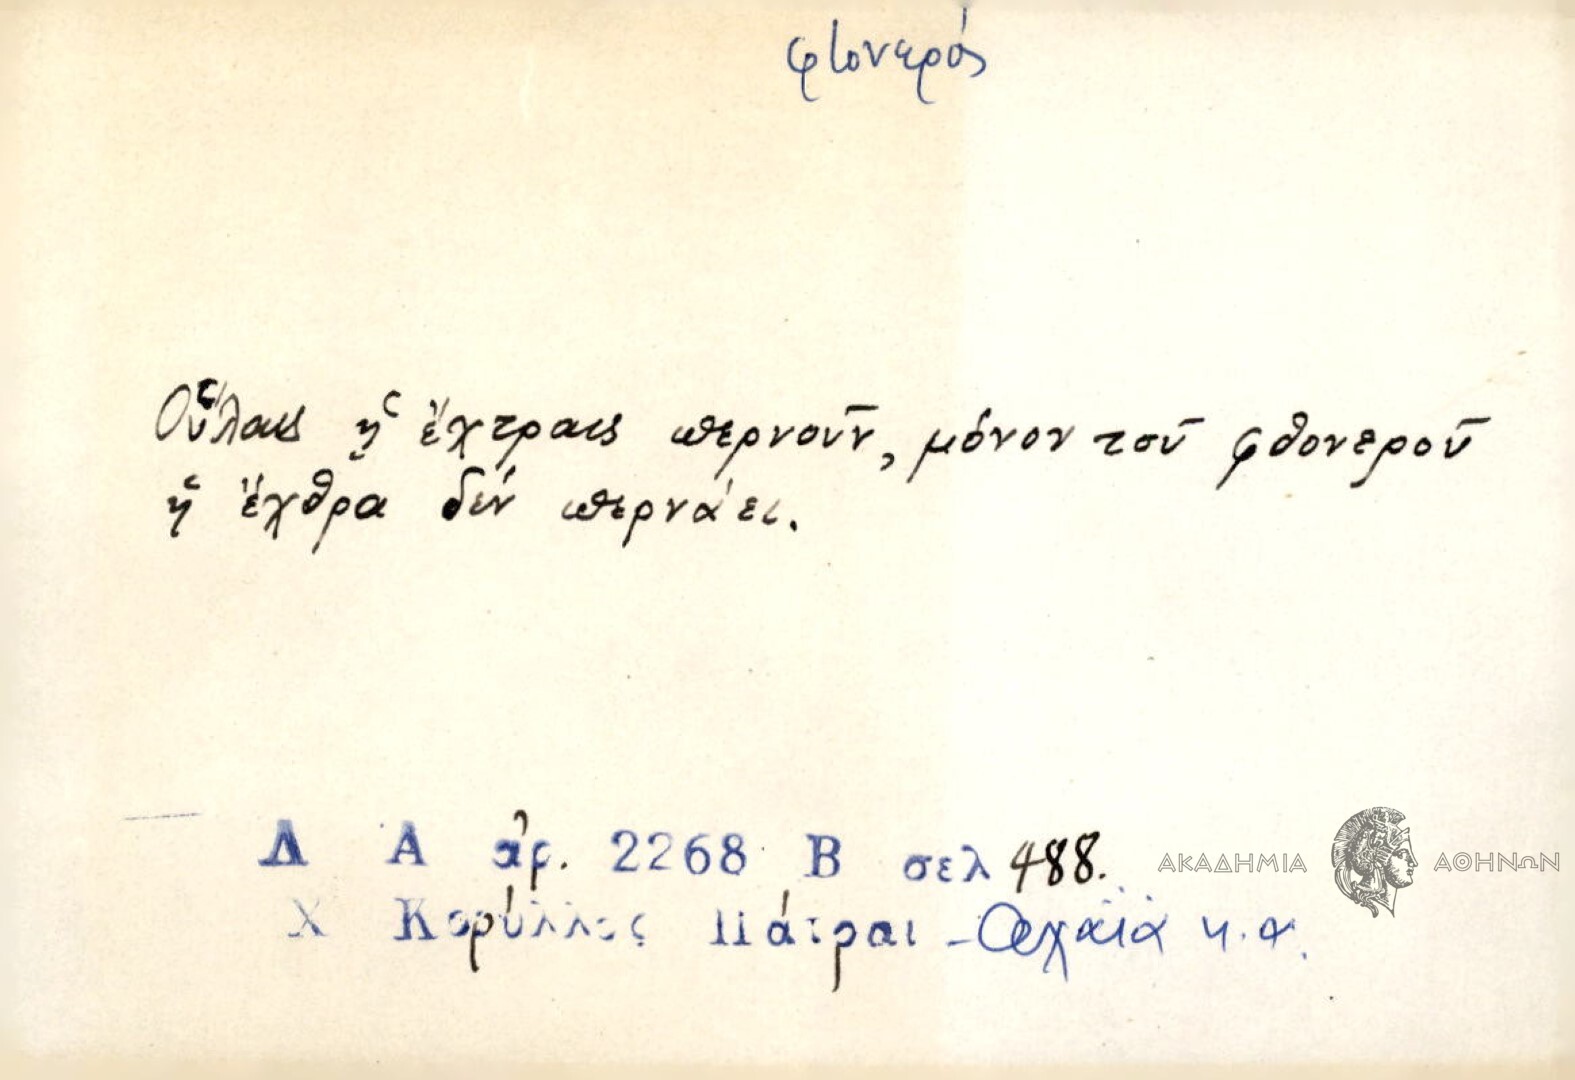 φτονερός
Οὕλαις ᾑ ἔχτραις περνοῦν, μόνον τοῦ φθονεροῦ
ἡ ἔχθρα δὲν περνάει.
Λ Α ἀρ. 2268 Β σελ 488.
Χ Κορύλλος Πάτραι - Ἀχαΐα κ.α.
ΑΚΑΔΗΜΙΑ ΑΘΗΝΩΝ